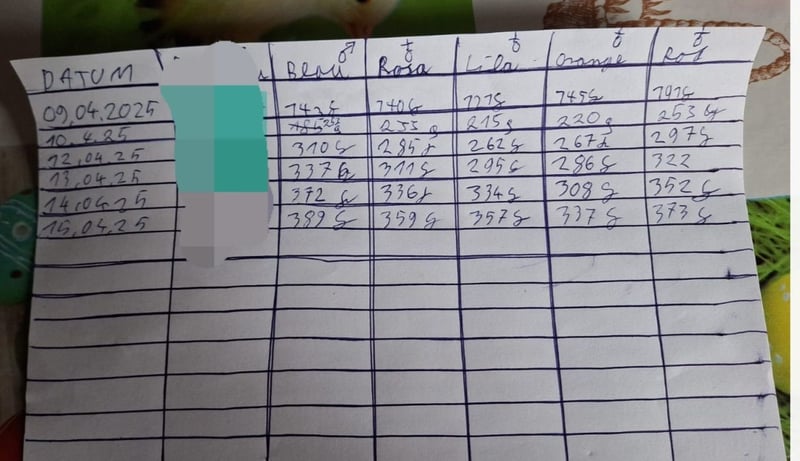 DATUM Blau ♂ Rosa ♀ Lila ♀ Orange ♀ Rot ♀
09.04.2025 142g 140g 145g
10.4.25 255g 215g 220g 253g
12.04.25 310g 285g 262g 267g 297g
13.04.25 337g 311g 295g 286g 322
14.04.25 372g 336g 334g 308g 352g
15.04.25 389g 359g 357g 337g 373g